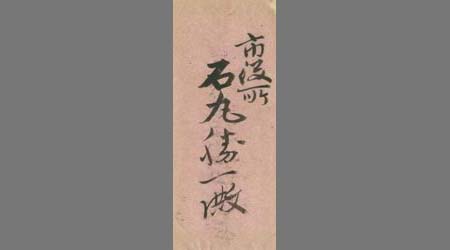 市役所
石丸勝一殿